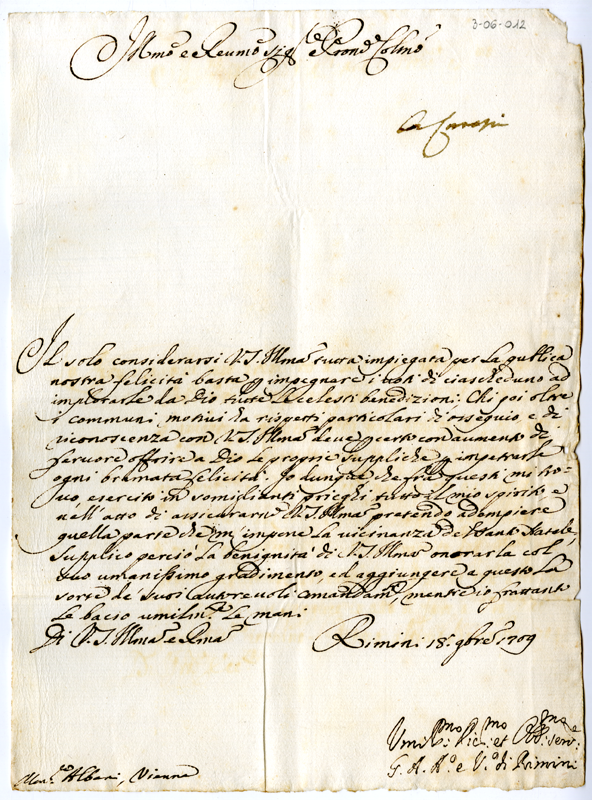 3-06-012
Illmo e Reumo Sig.e Prone Colmo
Il solo considerarsi V.S. Illma tutta impiegata per la publica
nostra felicità basta p impegnare i voti di ciascheduno ad
implorarle da Dio tutte le celesti benedizioni: Chi poi oltre
i communi motivi ha rispetti particolari di ossequio e di
riconoscenza con V.S. Illma deve p certo con aumento di
fervore offrire a Dio le proprie suppliche p impetrarle
ogni bramata felicità: Io dunque che frà questi mi tro-
vo, esercito in somiglianti prieghi tutto il mio spirito e
nell'atto di assicurarne V.S. Illma pretendo adempiere
quella parte che m'impone la vicinanza del Santo Natale.
Supplico perciò la benignità di V.S. Illma onorarla col
suo umanissimo gradimento, ed aggiungere a questo la
sorte de suoi autorevoli comandam.ti, mentre io frattanto
le bacio umilm.te le mani
Di V.S. Illma e Rma
Rimini 18. gbre 1709
Umi.mo Di.mo et Obb.mo serv.e
G. A. A.o e V.o di Rimini
Mon.re Albani, Vienna